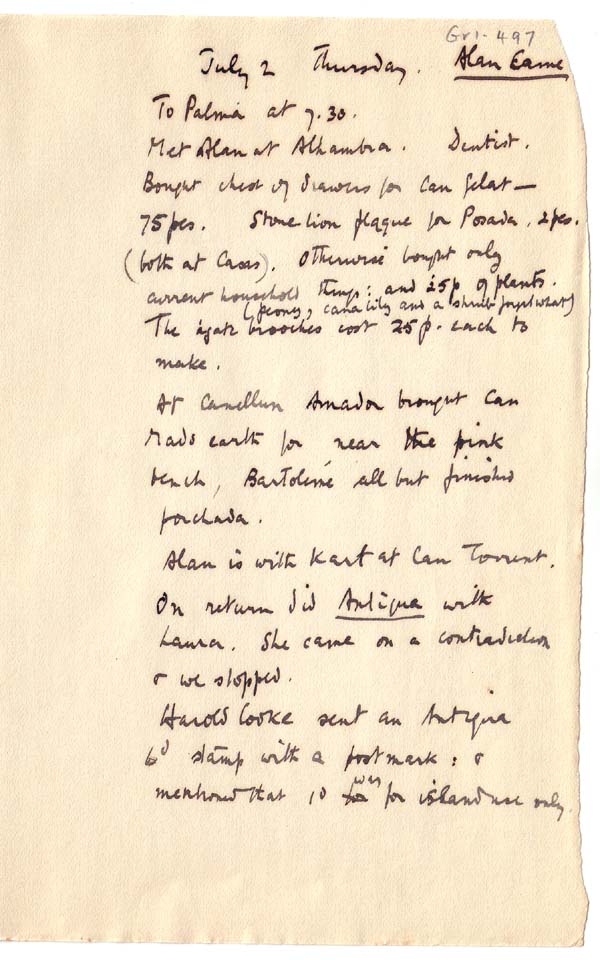 Gr1-497
July 2 Thursday. Alan came
To Palma at 7.30.
Met Alan at Alhambra. Dentist.
Bought chest of drawers for Can Gelat —
75 pes. Stone lion plaque for Posada, 2 pes.
(both at Casas). Otherwise bought only
current household things: and 25p of plants.
(peony, cana lily and a shrub forget what)
The agate brooches cost 25 p. each to
make.
At Canellun Amador brought Can
Mado earth for near the pink
bench, Bartolomé all but finished
porchada.
Alan is with Karl at Can Torrent.
On return did Antigua with
Laura. She came on a contradiction
& we stopped.
Harold Cooke sent an Antigua
6d stamp with a postmark: &
mentioned that 1d was for island use only.